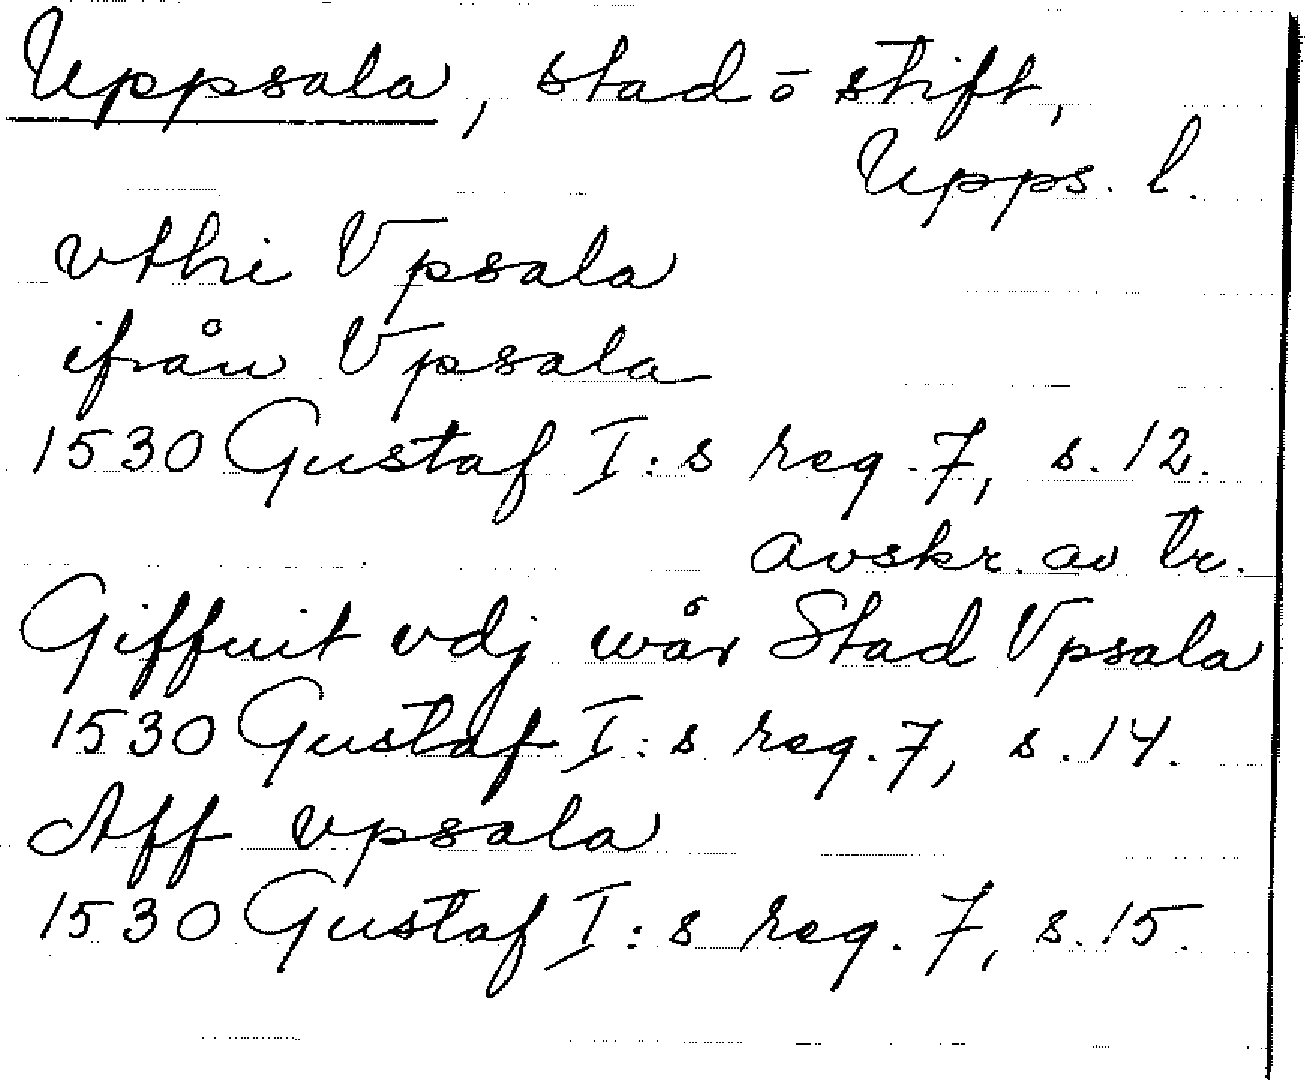 Uppsala, stad o stift,
Upps. l.
vthi Vpsala
ifrån Vpsala
1530 Gustaf I:s reg. 7, s. 12.
avskr. av tr.
Giffuit vdj wår Stad Vpsala
1530 Gustaf I:s reg. 7, s. 14.
Aff vpsala
1530 Gustaf I:s reg. 7, s. 15.